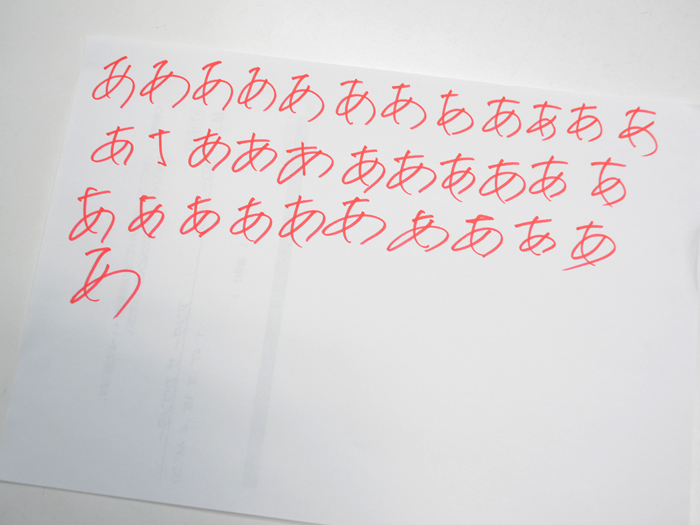 あああああああああああ あ
あ ああああああああ あ
あああああああああああ
あ